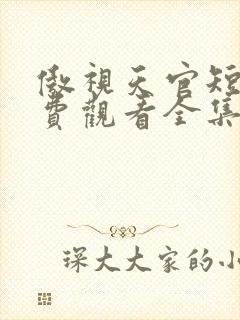 傲視天官短
費觀看全集
琛大大家的小